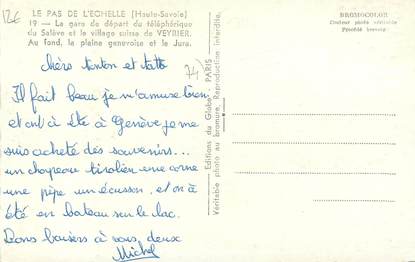 12€
LE PAS DE L'ECHELLE (Haute-Savoie)
19 — La gare de départ du téléphérique
du Salève et le village suisse de VEYRIER.
Au fond, la plaine genevoise et le Jura.
74)
chers tonton et tatta
Il fait beau je m'amuse bien
et on a été a Genève je me
suis acheté des souvenirs...
un chapeau tirolien une corne
une pipe un écusson, et on a
été en bateau sur le lac.
Bons baisers à vous deux
Michel
Editions du Globe, PARIS
Véritable photo au bromure, Reproduction interdite.
BROMOCOLOR
Couleur photo véritable
Procédé breveté